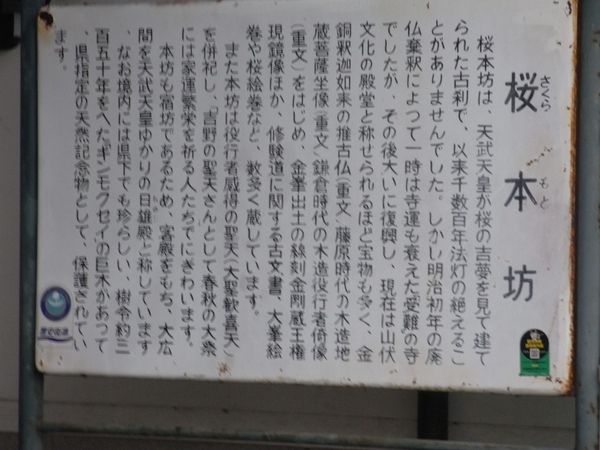 桜本坊
さくら もと
桜本坊は、天武天皇が桜の吉夢を見て建て
られた古刹で、以来千数百年法灯の絶えるこ
とがありませんでした。しかし明治初年の廃
仏棄釈によって一時は寺運も衰えた受難の寺
でしたが、その後大いに復興し、現在は山伏
文化の殿堂と称せられるほど宝物も多く、金
銅釈迦如来の推古仏(重文)藤原時代の木造地
蔵菩薩坐像(重文)鎌倉時代の木造役行者倚像
(重文)をはじめ、金峯出土の線刻金剛蔵王権
現鏡像ほか、修験道に関する古文書、大峯絵
巻や桜絵巻など、数多く蔵しています。
また本坊は役行者感得の聖天(大聖歓喜天)
を併祀し、「吉野の聖天さん」として春秋の大祭
には家運繁栄を祈る人たちでにぎわいます。
本坊も宿坊であるため、客殿をもち、大広
間を天武天皇ゆかりの日雄殿と称しています
、なお境内には県下でも珍らしい、樹令約三
百五十年をへた「ギンモクセイ」の巨木があって
、県指定の天然記念物として、保護されてい
ます。